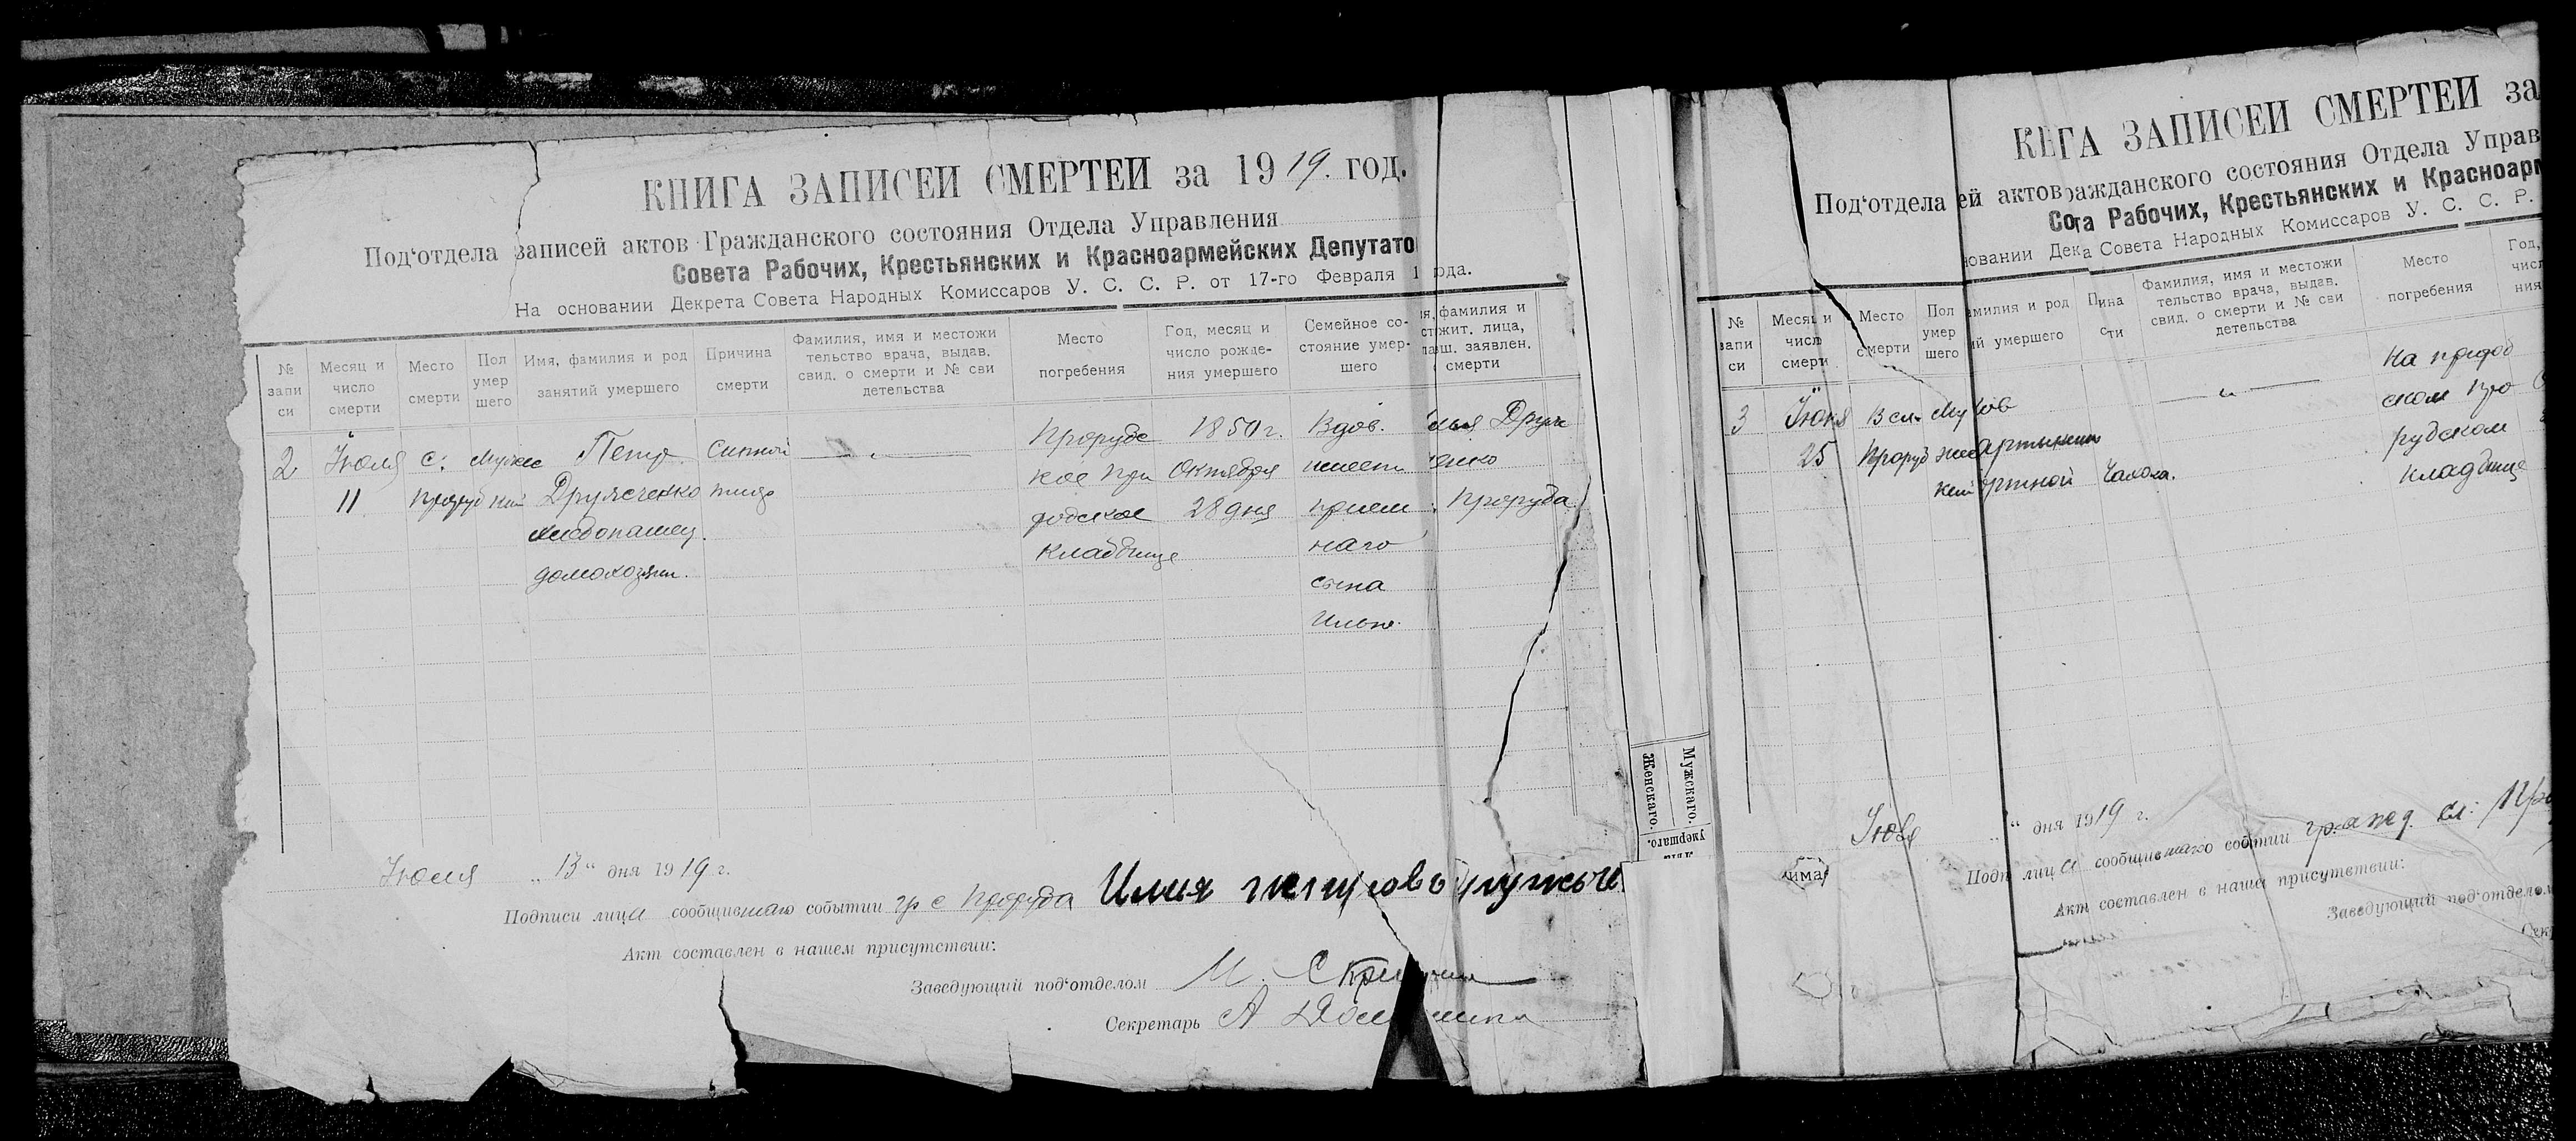 КНИГА ЗАПИСЕЙ СМЕРТЕЙ за 1919. год.
Под‘отдела записей актов Гражданского состояния Отдела Управления
Совета Рабочих, Крестьянских и Красноармейских Депутато
На основании Декрета Совета Народных Комиссаров У. С. С. Р. от 17-го Февраля 1 ода.
№ запи си
Месяц и число смерти
Место смерти
Пол умер шего
Имя, фамилия и род занятий умершего
Причина смерти
Фамилия, имя и местожи тельство врача, выдав. свид. о смерти и № сви детельства
Место погребения
Год, месяц и число рожде- ния умершего
Семейное со- стояние умер- шего
я, фамилия и ст жит. лица, заш. заявлен. смерти
2 Июля с. Мужес Петр Сыпной Проруб 1850 г. Вдов. Друж
11 Проруб кий Дружченко тиф кое При Октября имеет енко
хлебопашец. родское 28 дня прием Проруба
домохозяин. кладбище наго
сына
Илью.
Июля „13“ дня 1919 г.
Подписи лица сообщившаго событии гр с Проруба Илия
Акт составлен в нашем присутствии:
Заведующий под‘отделом М.
Секретарь А
Мужского.
Женскаго.
умершаго.
КН ГА ЗАПИСЕЙ СМЕРТЕЙ за
Под‘отдела ей актов ражданского состояния Отдела Управ
Со та Рабочих, Крестьянских и Красноарм
новании Дек а Совета Народных Комиссаров У. С. С. Р.
№ запи си
Месяц и число смерти
Место смерти
Пол умер шего
амилия и род ий умершего
П ина с ти
Фамилия, имя и местожи тельство врача, выдав. свид. о смерти и № сви детельства
Место погребения
Год, чис ния
3 Июля В сл. Муж На приход
25 Проруб ском Про
кий рудском
кладбище
Июля “ дня 1919 г.
Подп лица сообщившаго событии гражд. сл: Пр
Акт составлен в наше присутствии:
Заведующий под‘отделом
Секр